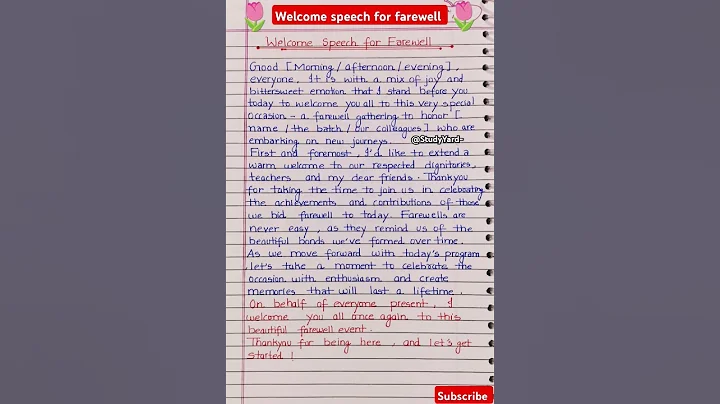 Welcome speech for farewell
Welcome Speech for Farewell
Good [Morning / afternoon / evening],
everyone, It is with a mix of joy and
bittersweet emotion that I stand before you
today to welcome you all to this very special
occasion - a farewell gathering to honor [
name / the batch / our colleagues] who are
embarking on new journeys.
@StudyYard-
First and foremost, I'd like to extend a
warm welcome to our respected dignitaries,
teachers and my dear friends. Thankyou
for taking the time to join us in celebrating
the achievements and contributions of those
we bid farewell to today. Farewells are
never easy, as they remind us of the
beautiful bonds we've formed over time.
As we move forward with today's program
, let's take a moment to celebrate the
occasion with enthusiasm and create
memories that will last a lifetime.
On behalf of everyone present, I
welcome you all once again to this
beautiful farewell event.
Thankyou for being here, and let's get
started!
Subscribe